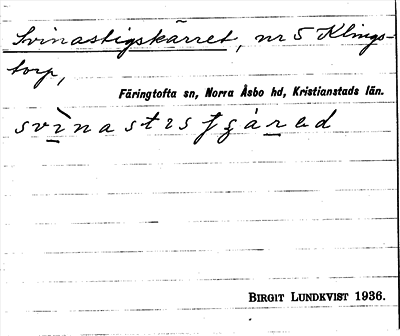 Svinastigskärret, nr 5 Klings-
torp,
Färingtofta sn, Norra Åsbo hd, Kristianstads län.
BIRGIT LUNDKVIST 1936.